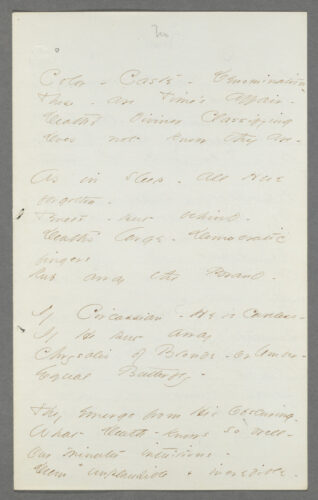 Color - Caste - Denomination
These - are Time's Affair -
Death's diviner Classifying
Does not know they are -
As in sleep - All Hue
forgotten -
Tenets - put behind -
Death's large - Democratic
fingers
Rub away the Brand -
If Circassian - He is Careless -
If He put away
Chrysalis of Blonde - Or Umber -
Equal Butterfly -
They emerge from His Obscuring -
What Death - knows so well -
Our minuter intuitions -
Deem unplausible + incredible